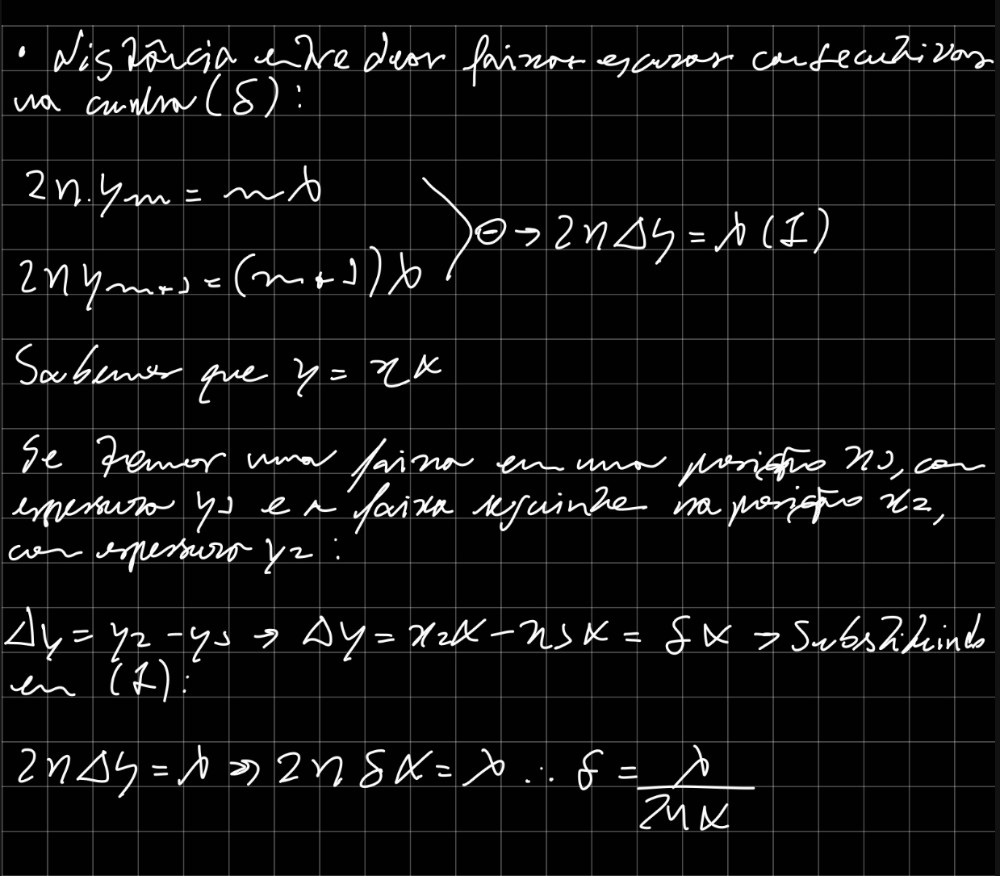 • Distância entre duas faixas escuras consecutivas
na cunha (δ):
2n.ym = mλ
⊖ → 2nΔy = λ (I)
2nym+1 = (m+1)λ
Sabemos que y = xα
Se temos uma faixa em uma posição x1, com
espessura y1 e a faixa seguinte na posição x2,
com espessura y2:
Δy = y2 - y1 → Δy = x2α - x1α = δα → Substituindo
em (I):
2nΔy = λ ⇒ 2nδα = λ ∴ δ = λ/2nα